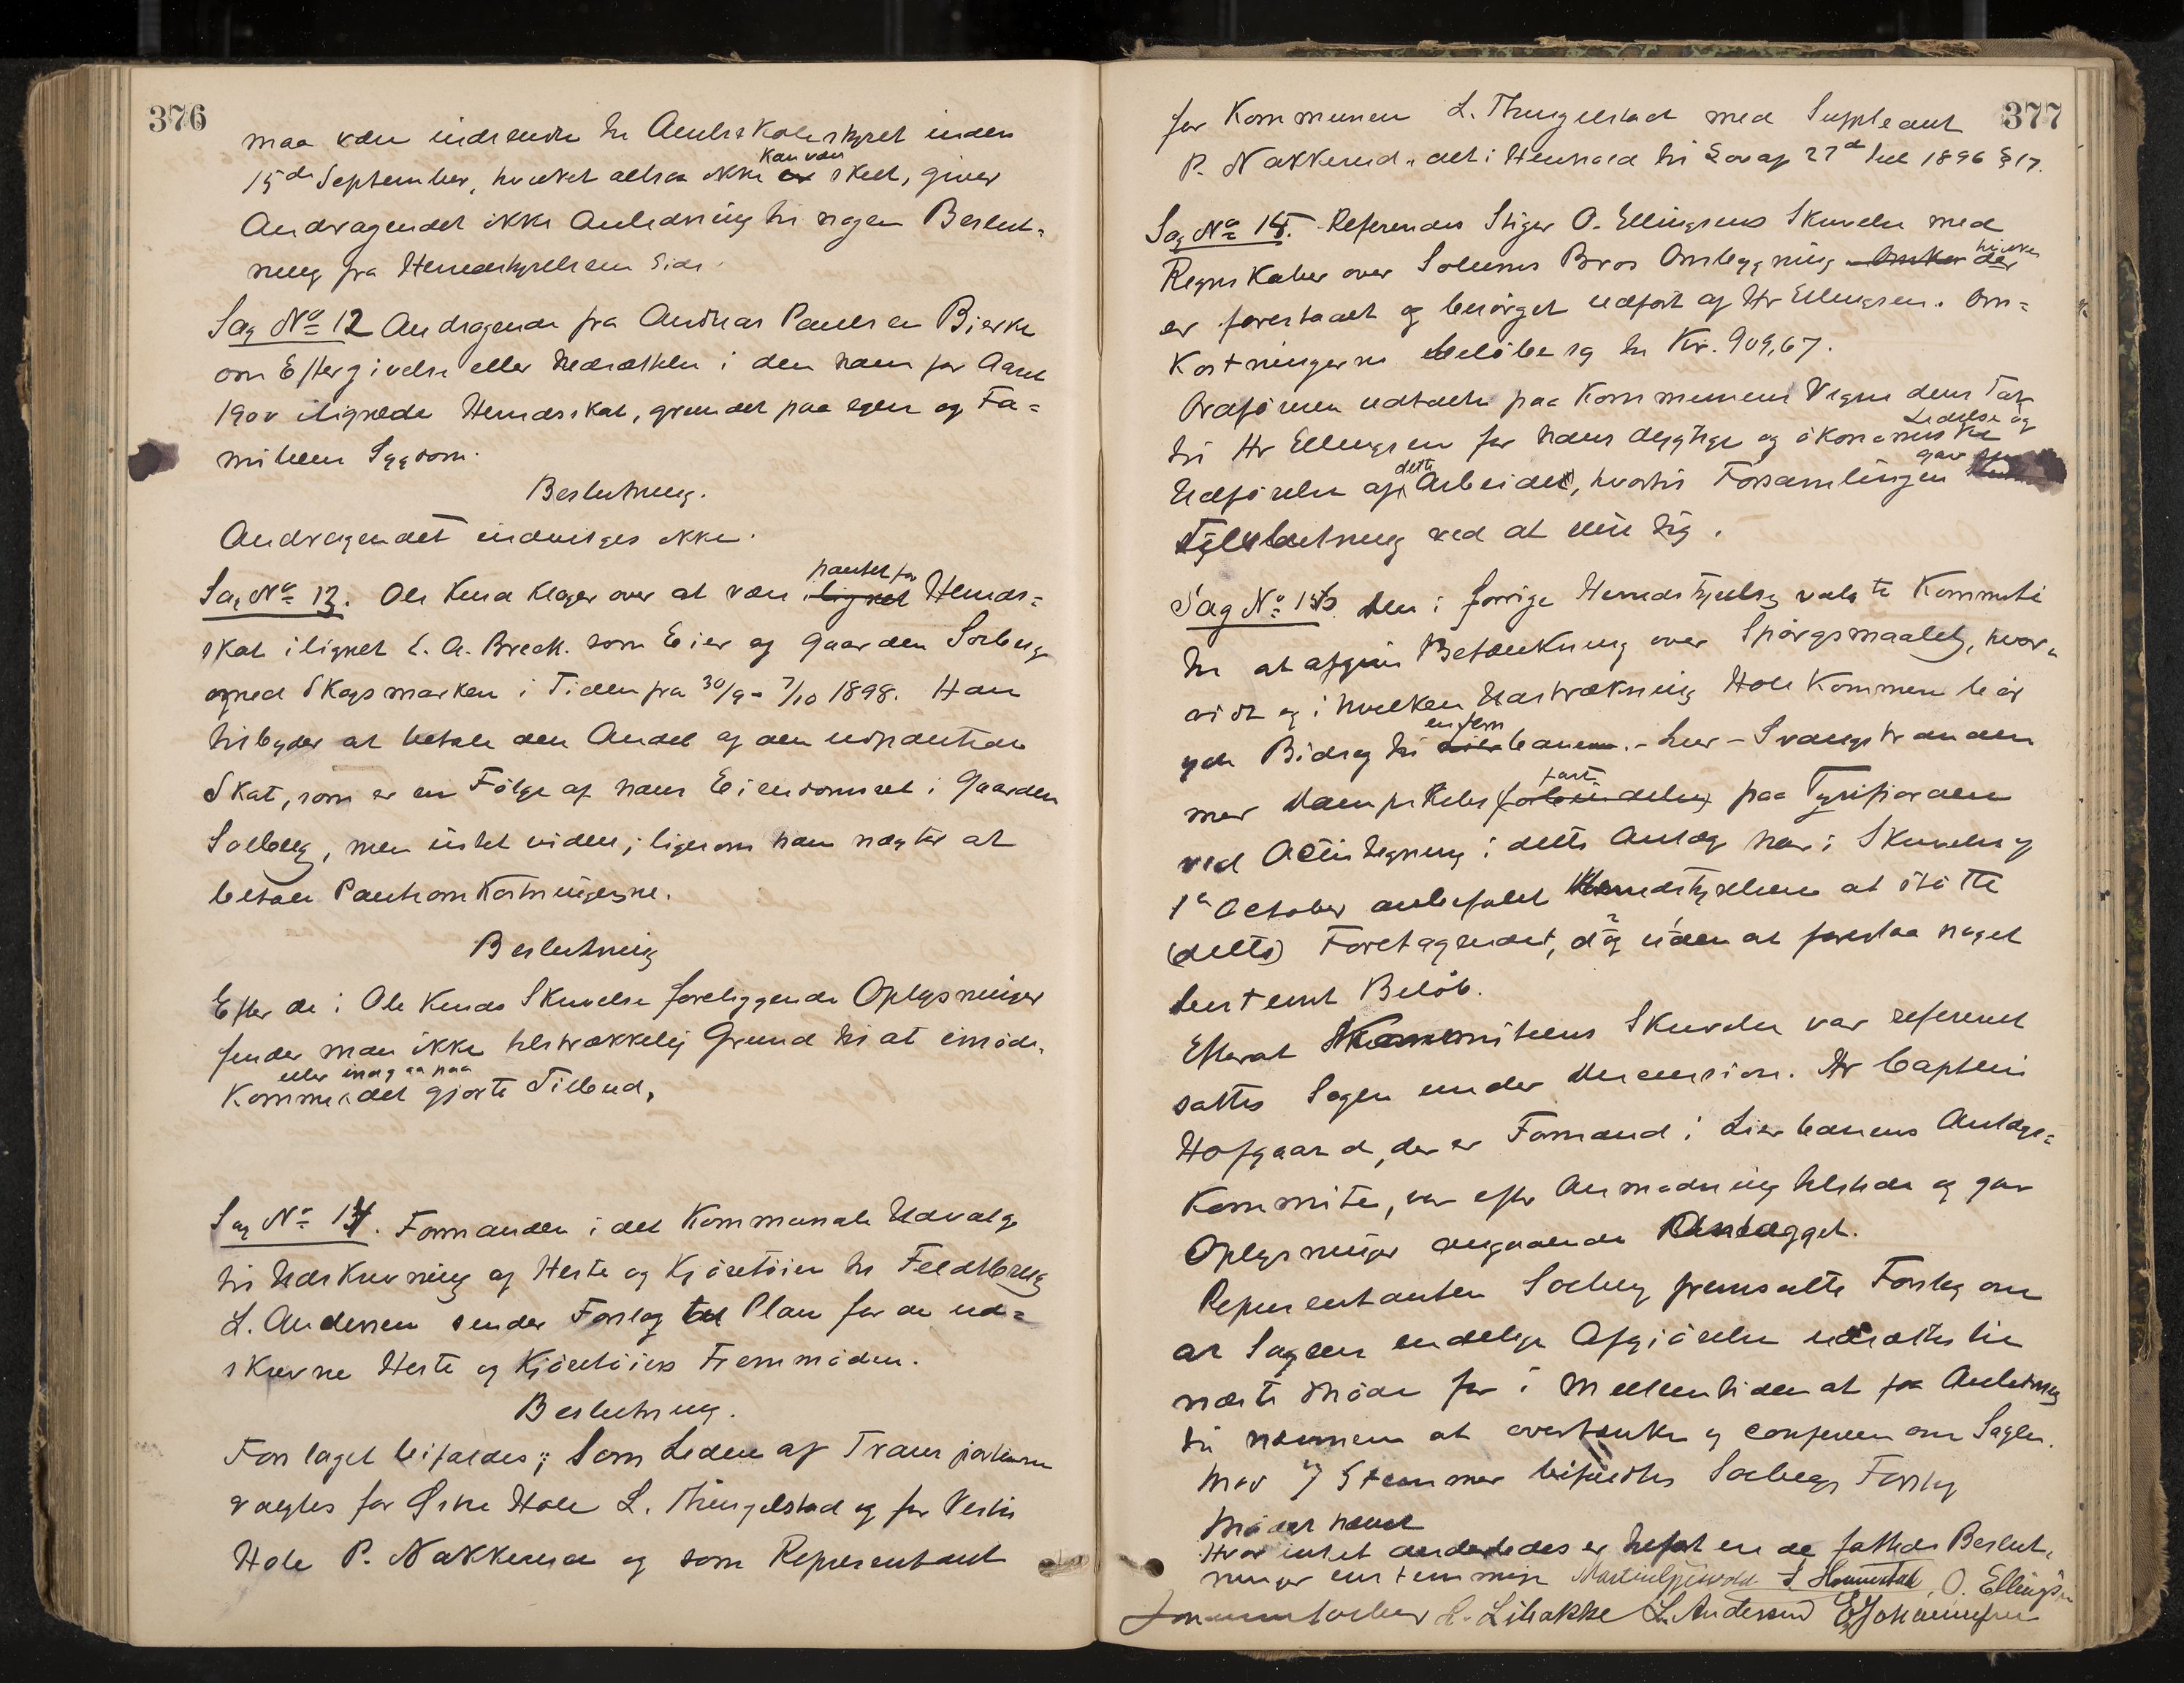 376
maa være indsendte til Amtsskolestyret inden
15de September, hvilket altsaa ikke kan være skeet, giver
Andragendet ikke Anledning til nogen Beslut-
ning fra Herredsstyrelsens Side.
Sag No 12 Andragende fra Andreas Paulsen Bjerke
om Eftergivelse eller Nedsættelse i den ham for Aaret
1900 ilignede Herredsskat, grundet paa egen og Fa-
miliens Sygdom.
Beslutning.
Andragendet indvilges ikke.
Sag No 13. Ole Kena klager over at være lignet pantet for Herreds-
skat ilignet L. A. Breck. som Eier af Gaarden Solberg
med Skogsmarken i Tiden fra 30/9 - 7/10 1898. Han
tilbyder at betale den Andel af den udpantede
Skat, som er en Følge af hans Eiendomsret i Gaarden
Solberg, men intet videre; ligesom han nægter at
betale Pantomkostningerne.
Beslutning
Efter de i Ole Kenas Skrivelse foreliggende Oplysninger
finder man ikke tilstrækkelig Grund til at imøde-
komme eller indgaa paa det gjorte Tilbud.
Sag No 14. Formanden i det Kommunale Udvalg
til Udskrivning af Heste og Kjøretøier til Feldtbrug
L. Andersen sender Forslag til Plan for de ud-
skrevne Heste og Kjøretøiers Fremmøden.
Beslutning.
Forslaget bifaldes; Som Ledere af Transporterne
valgtes for Østre Hole L. Thingelstad og for Vestre
Hole P. Nakkerud og som Representant
377
for Kommunen L. Thingelstad med Suppleant
P. Nakkerud, alt i Henhold til Lov af 27de Juli 1896 § 17.
Sag No 15. Refereredes Stiger O. Ellingsens Skrivelse med
Regnskaber over Solums Bros Ombygning der hvilken
er forestaaet og besørget udført af Hr Ellingsen. Om-
kostningerne beløbe sig til Kr. 909,67.
Ordføreren udtalte paa Kommunens Vegne dens Tak
til Hr Ellingsen for hans dygtige og økonomiske Ledelse og
Udførelse af dette Arbeidet, hvortil Forsamlingen gav sin
Tilslutning ved at reise sig.
Sag No 16. Den i forrige Herredsstyrelse valgte Kommite
til at afgive Betænkning over Spørgsmaalet, hvor-
vidt og i hvilken Udstrækning Hole Kommune bør
yde Bidrag til en Jernbane. - Lier - Svangstranden
med Dampskibsforbindelse paa Tyrifjorden
ved Actietegning i dette Anlæg har i Skrivelse af
1ste October anbefalet Herredsstyrelsen at støtte
(dette) Foretagendet, dog uden at foreslaa noget
bestemt Beløb.
Efterat Kommiteens Skrivelse var refereret
sattes Sagen under Discussion. Hr Captein
Hofgaard, der er Formand i Lierbanens Anlægs-
Kommite, var efter Anmodning tilstede og gav
Oplysninger angaaende Anlægget.
Representanten Solberg fremsatte Forslag om
at Sagens endelige Afgjørelse udsættes til
næste Møde for i Mellemtiden at faa Anledning
til nærmere at overtænke og conferere om Sagen.
Mod 7 Stemmer bifaldtes Solbergs Forslag
Mødet hævet
Hvor intet anderledes er tilført ere de fattede Beslut-
ninger enstemmige Martin Gjesvold S. Hounstad, O. Ellingsen
H. Libakke L. Andersen E. Johannessen